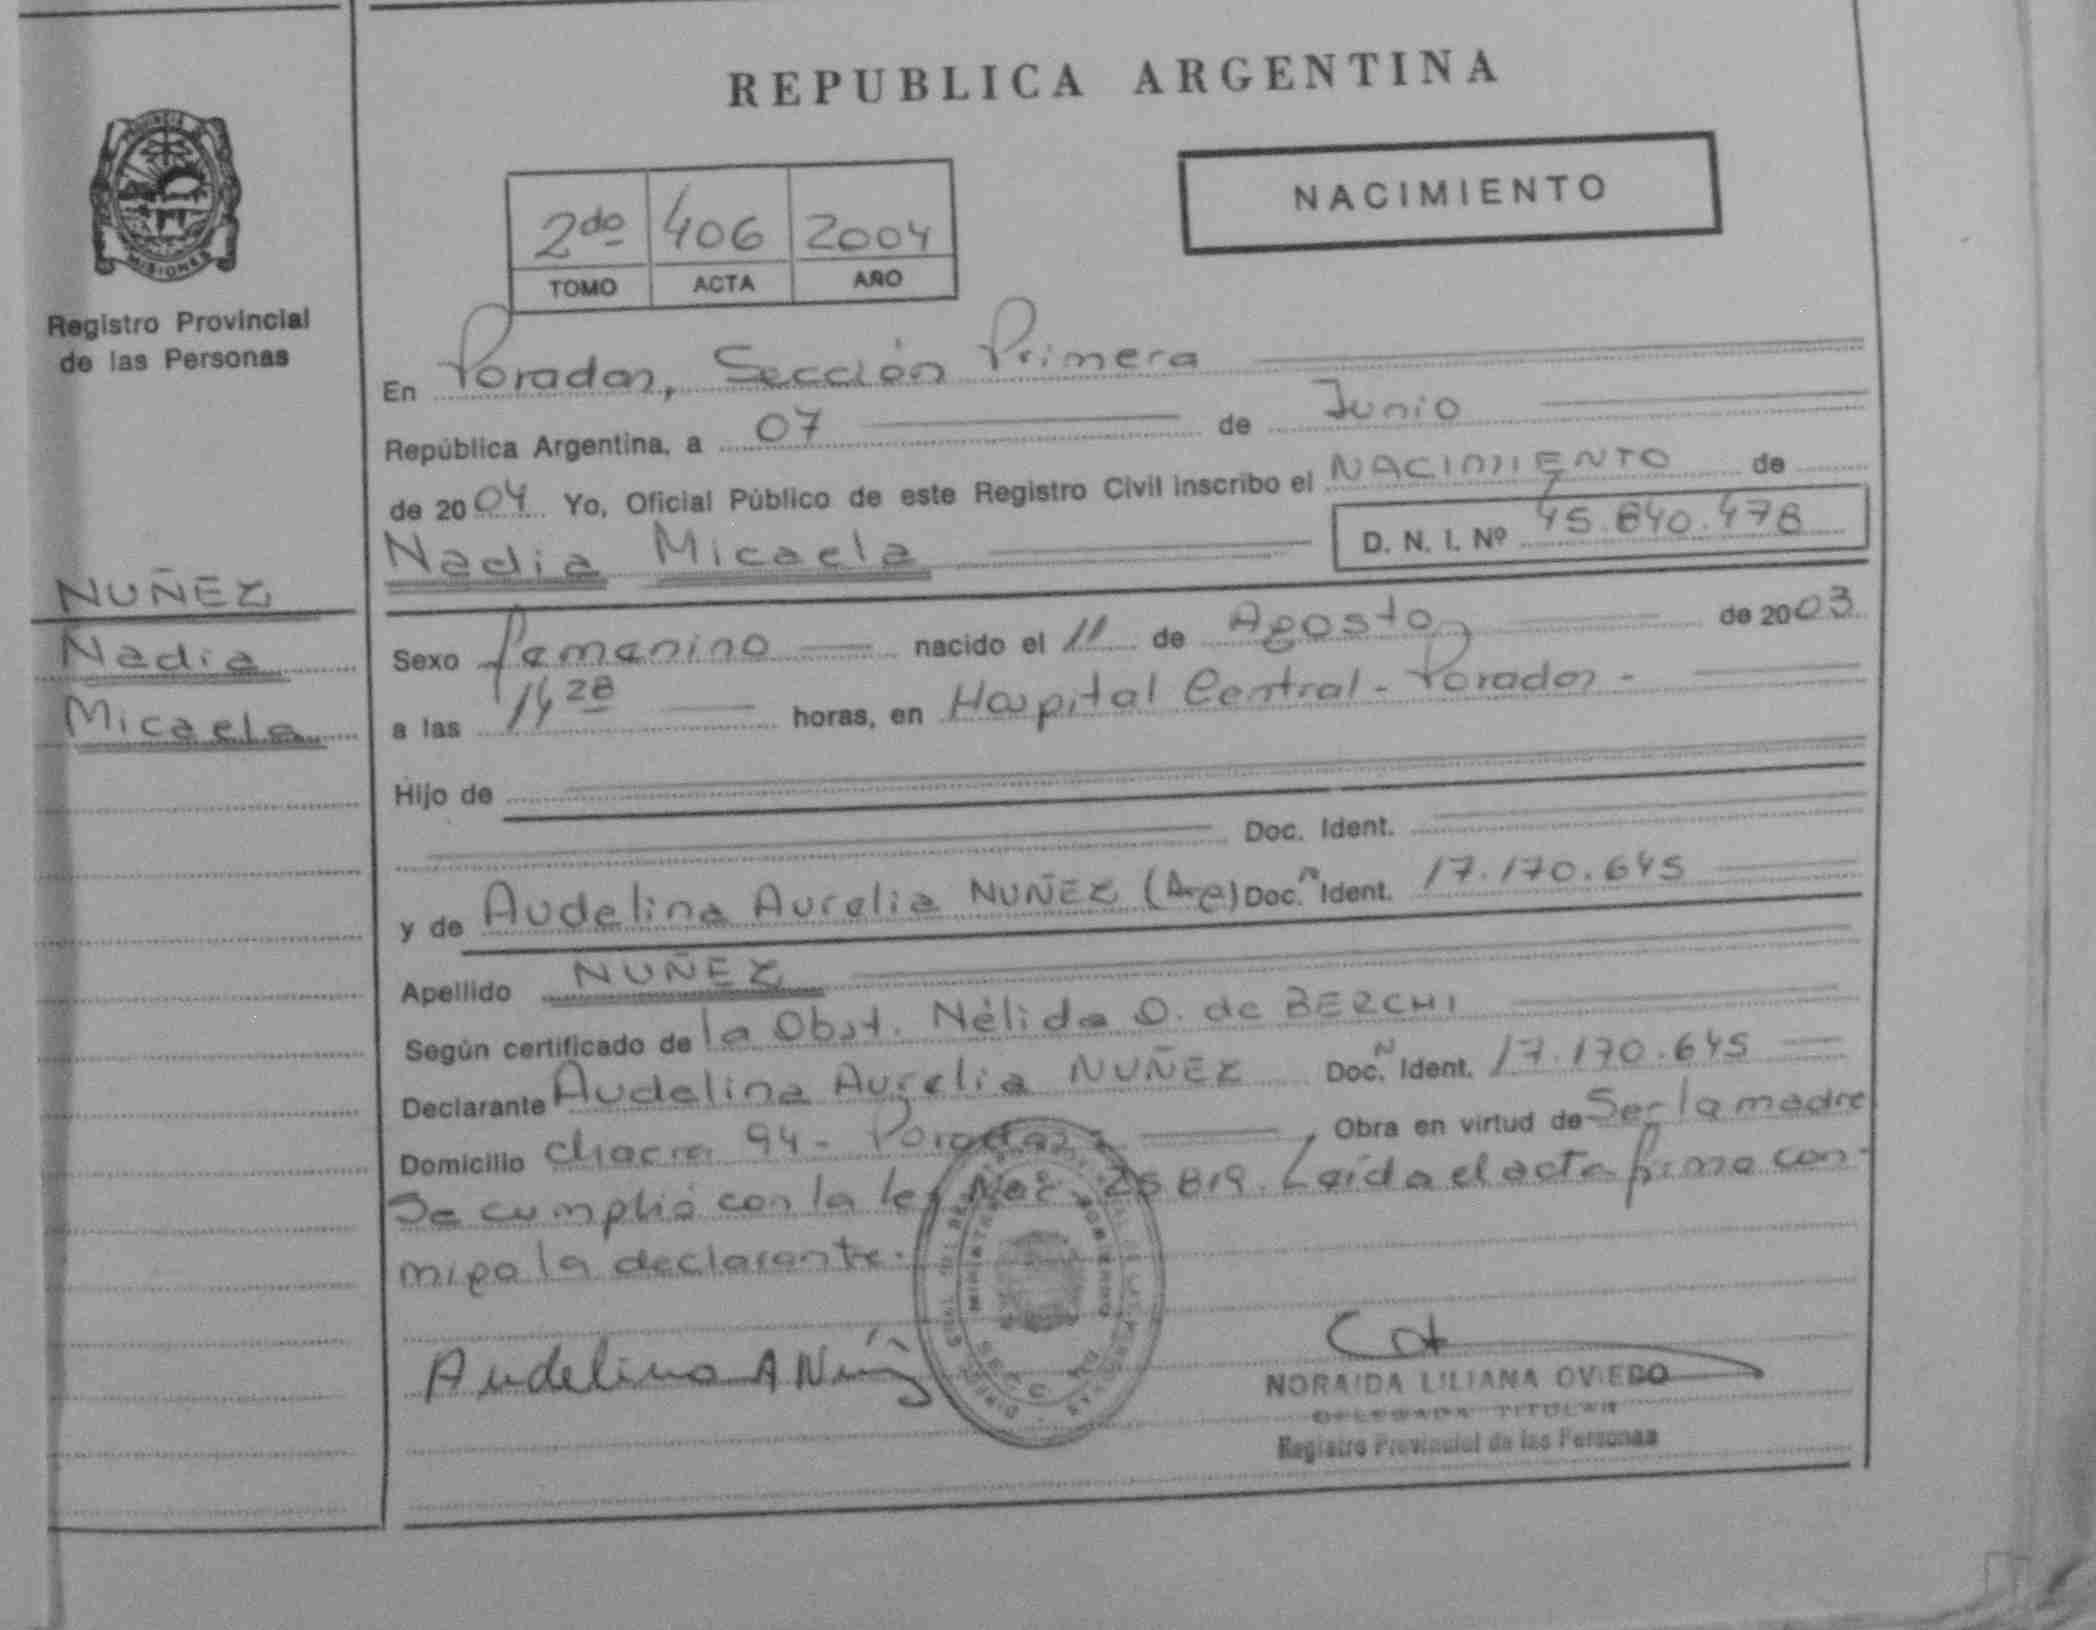 REPUBLICA ARGENTINA
NACIMIENTO
2do 406 2004
TOMO ACTA AÑO
PROVINCIA DE
MISIONES
Registro Provincial
de las Personas
NUÑEZ
Nadia
Micaela
En Posadas, Sección Primera
República Argentina, a 07 de Junio
de 2004 Yo, Oficial Público de este Registro Civil inscribo el NACIMIENTO de
Nadia Micaela D. N. I. Nº 45.840.478
Sexo femenino nacido el 11 de Agosto de 2003
a las 14 28 horas, en Hospital Central - Posadas -
Hijo de
Doc. Ident.
y de Audelina Aurelia NUÑEZ (Arg) Doc. N Ident. 17.170.645
Apellido NUÑEZ
Según certificado de la Obst. Nélida O. de BERCHI
Declarante Audelina Aurelia NUÑEZ Doc. N Ident. 17.170.645
Domicilio chacra 94 - Posadas - Obra en virtud de Ser la madre
Se cumplió con la ley Nac. 25819. Leída el acta firma con-
migo la declarante.
Audelina A Núñez
MINISTERIO GOBIERNO
NORAIDA LILIANA OVIEDO
DELEGADA TITULAR
Registro Provincial de las Personas